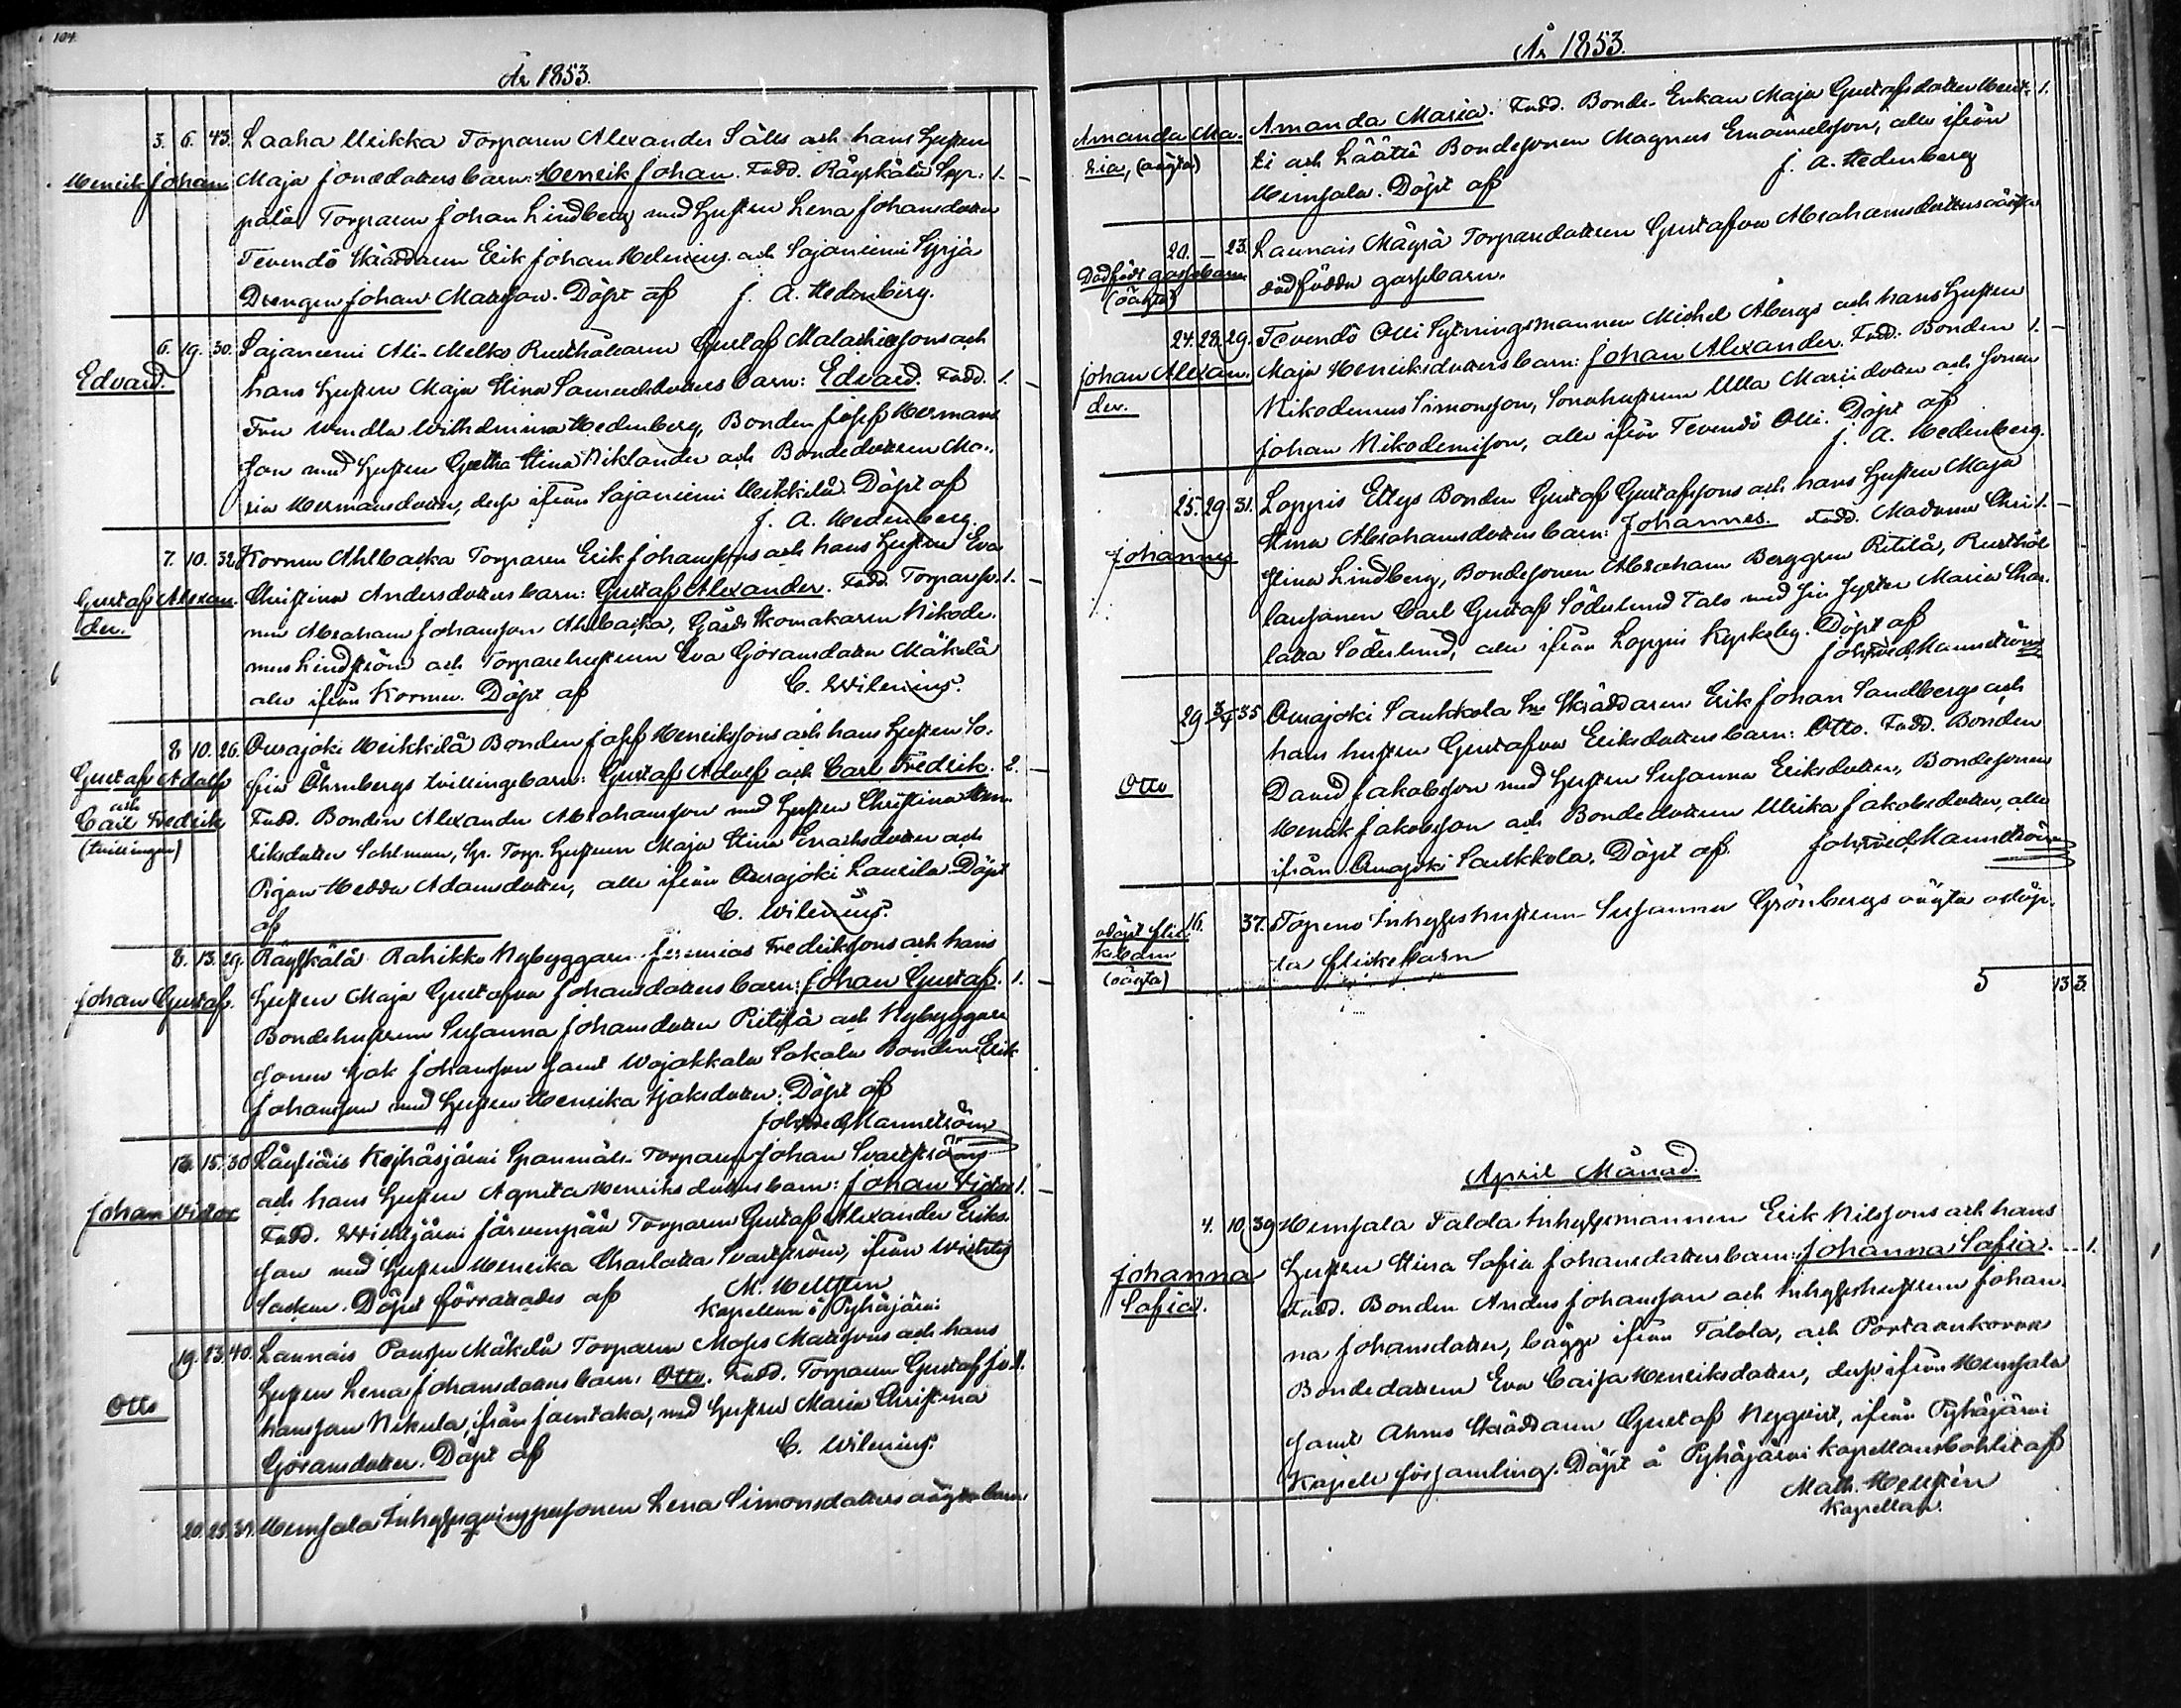 104.
År 1853.
3. 6. 43. Laaha Uеikka Torparen Alexander Sälls och hans hustru
Henrik Johan Maja Jonædotters barn: Henrik Johan. Fadd. Räyskälä 1.
pälä Torparen Johan Lindberg med hustru Lena Johansdotter
Tevendö Skräddaren Erik Johan Helenius och Sajaniemi Syrjä
Drengen Johan Matsson. Döpt af J. A. Hedenberg.
6. 19. 30. Sajaniemi Ali-Melko Rusthållaren Gustaf Malachiessons och
Edvard. hans hustru Maja Stina Samuelsdotters barn: Edvard. Fadd. 1.
Fru Wendla Wilhelmina Hedenberg, Bonden Josef Hermans
son med hustru Gretha Stina Niklander och Bondedottren Ma-
ria Hermansdotter, desse ifrån Sajaniemi Heikkilä. Döpt af
J. A. Hedenberg.
7. 10. 32. Kormu Ahlbacka Torparen Erik Johanssons och hans hustru Eva
Gustaf Alexan- Christina Andersdotters barn: Gustaf Alexander. Fadd. Torpareso- 1.
der. nen Abraham Johansson Ahlbacka, Gårds Skomakaren Nikode-
mus Lindström och Torparehustrun Eva Göransdotter Mäkelä
alla ifrån Kormu. Döpt af C. Wilenius.
8 10. 26. Ourajoki Heikkilä Bonden Josef Henrikssons och hans hustru So-
Gustaf Adolf fia Öhrnbergs tvillingebarn: Gustaf Adolf och Carl Fredrik. 2.
och
Carl Fredrik Fadd. Bonden Alexander Abrahamsson med hustru Christina Hen-
(tvillingar) riksdotter Sahlman, Torp. hustrun Maja Stina Enochsdotter och
Pigan Hedda Adamsdotter, alla ifrån Ourajoki Laurila. Döpt
af C. Wilenius.
8. 13. 29. Räyskälä Rahikko Nybyggaren Jeremias Fredrikssons och hans
Johan Gustaf. hustru Maja Gustafva Johansdotters barn: Johan Gustaf. 1.
Bondehustrun Susanna Johansdotter Pietilä och Nybyggare
sonen Isak Johansson samt Wojakkala Sakala Bonden Erik
Johansson med hustru Henrika Isaksdotter. Döpt af
Joh. Fred. Mannström
13. 15. 30 Läyliäis Keyhäsjärvi Spanmåls-Torparen Johan Svartströms
Johan Victor och hans hustru Agneta Henriksdotters barn: Johan Victor 1.
Fadd. Wichtijärvi Järvenpää Torparen Gustaf Alexander Eriks-
son med hustru Henrika Charlotta Svartström, ifrån Wichtis
Socken. Döpet förrättades af M. Hellsten
Kapellan i Pyhäjärvi
19. 23. 40. Launais Pausu Mäkelä Torparen Moses Matssons och hans
Otto hustru Lena Johansdotters barn: Otto. Fadd. Torparen Gustaf Jo- 1.
hansson Nikula, ifrån Joentaka, med hustru Maria Christina
Göransdotter. Döpt af C. Wilenius.
20. 25. 31. Hemsala Inhysesqvinspersonen Lena Simonsdotters oägta barn
År 1853.
Amanda Ma- Amanda Maria. Fadd. Bonde-Enkan Maja Gustafsdotter 1.
ria, (oägta) ti och Läätti Bondesonen Magnus Emanuelsson, alla ifrån
Hemsala. Döpt af J. A. Hedenberg
20. – 23. Launais Mäyrä Torparedottren Gustafva Abrahamsdotters oägta
Dödfödt gossebarn dödfödda gossebarn.
(oägta)
24. 28. 29. Tevendö Olli Sytningsmannen Michel Åbergs och hans hustru
Johan Alexan- Maja Henriksdotters barn: Johan Alexander. Fadd. Bonden 1.
der. Nikodemus Simonsson, Sonehustrun Ulla Mariidotter och sonen
Johan Nikodemisson, alla ifrån Tevendö Olli. Döpt af
J. A. Hedenberg.
25. 29. 31. Loppis Ettys Bonden Gustaf Gustafssons och hans hustru Maja
Johannes Stina Abrahamsdotters barn: Johannes. Fadd. Madame Chri- 1.
stina Lindberg, Bondesonen Abraham Berggren Pietilä, Rusthål-
laresonen Carl Gustaf Söderlund Talo med sin syster Maria Char-
lotta Söderlund, alla ifrån Loppis Kyrkoby. Döpt af
Joh. Fred. Mannström
29 3/4 35 Ourajoki Saukkola Skräddaren Erik Johan Sandbergs och
hans hustru Gustafva Eriksdotters barn: Otto. Fadd. Bonden
Otto David Jakobsson med hustru Susanna Eriksdotter, Bondesonen
Henrik Jakobsson och Bondedottren Ulrika Jakobsdotter, alla
ifrån Ourajoki Saukkola. Döpt af Joh. Fred. Mannström
odöpt flic- 16. 37. Topeno Inhyseshustrun Susanna Grönbergs oägta odöp-
kebarn ta flickebarn
(oägta)
5 13 3.
April Månad.
4. 10. 39 Hemsala Talola Inhysesmannen Erik Nilssons och hans
Johanna hustru Stina Sofia Johansdotters barn: Johanna Sofia. 1.
Sofia. Fadd. Bonden Anders Johansson och Inhyseshustrun Johan-
na Johansdotter, bägge ifrån Talola, och Portaankorva
Bondedottren Eva Caisa Henriksdotter, desse ifrån Hemsala
samt Ahmo Skräddaren Gustaf Nyqvist, ifrån Pyhäjärvi
Kapell församling. Döpt å Pyhäjärvi Kapellansbohlet af
Math. Hellsten
Kapellan.